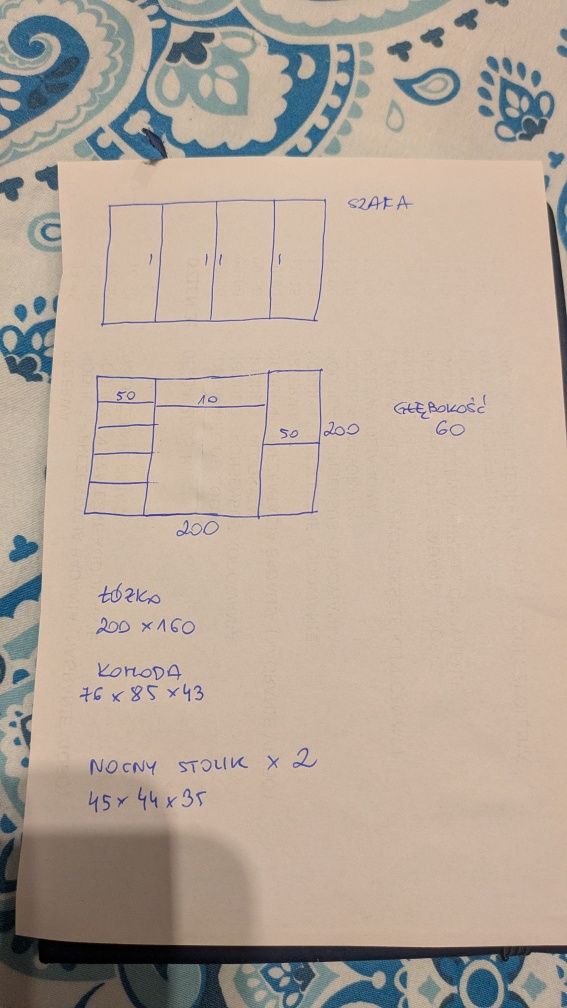 SZAFA
50
10
50
200
GŁĘBOKOŚĆ
60
200
ŁÓŻKO
200 x 160
KOMODA
76 x 85 x 43
NOCNY STOLIK x 2
45 x 44 x 35